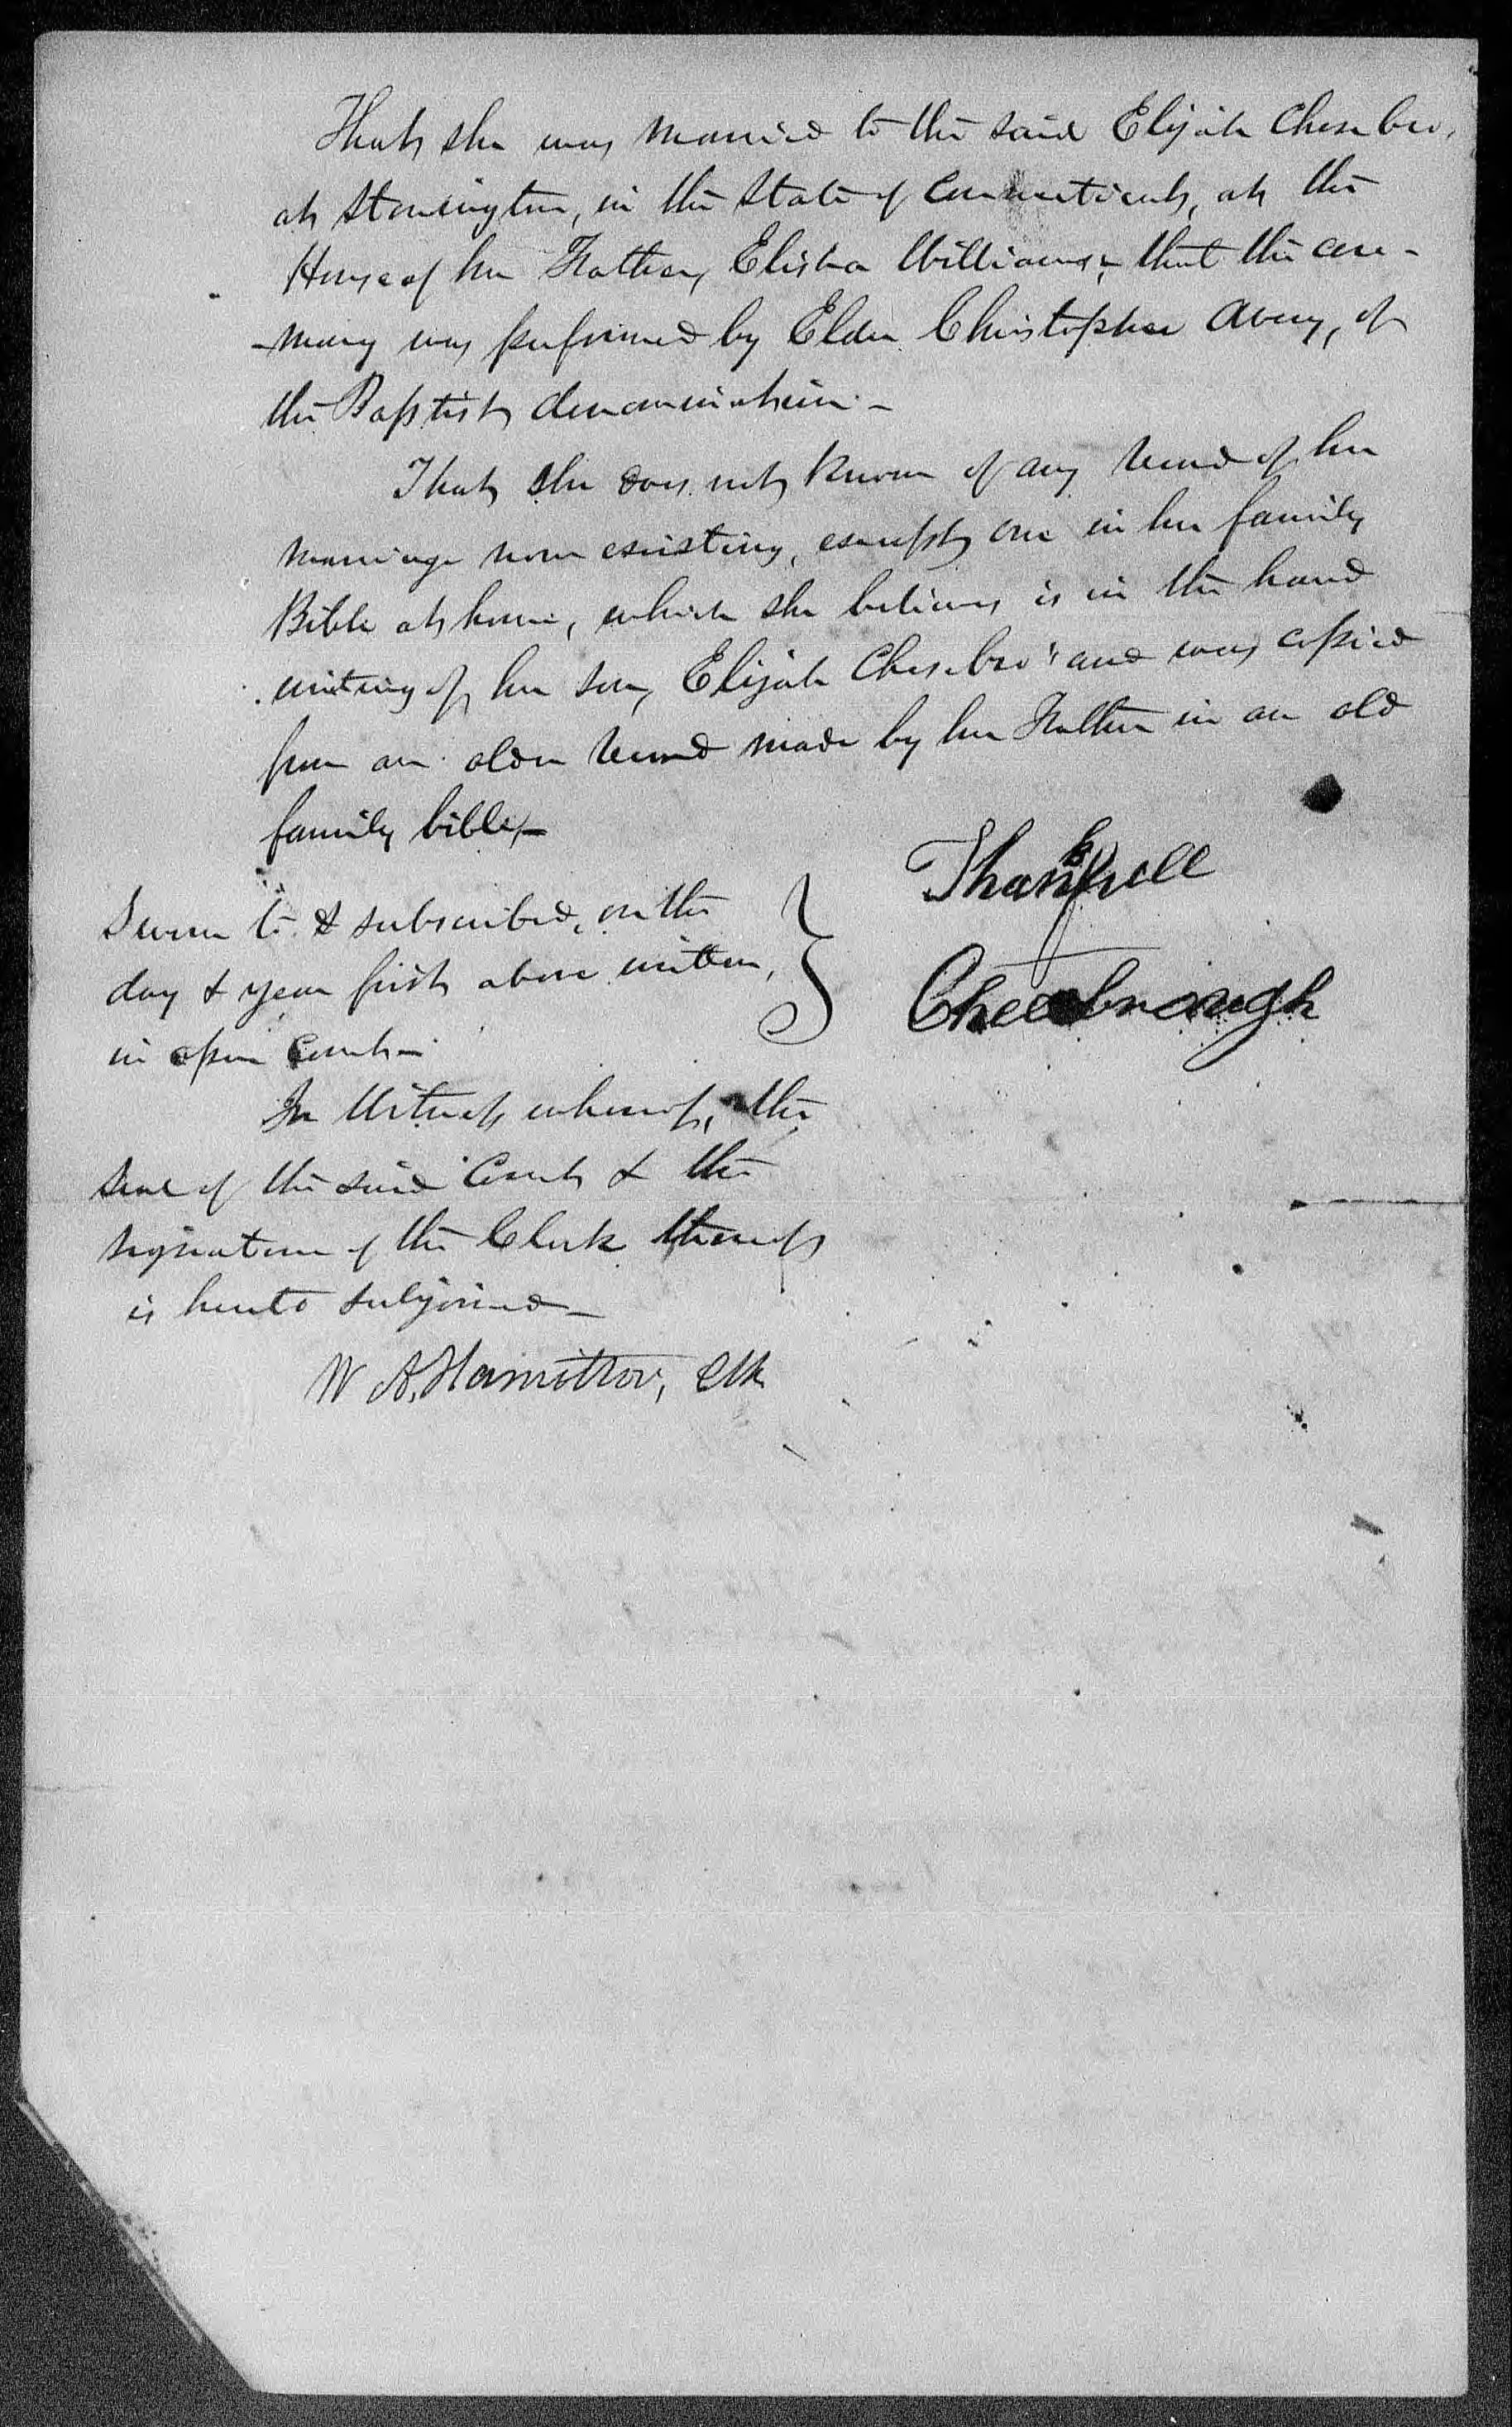 That she was married to the said Elijah Chesebro,
at Stonington, in the State of Connecticut, at the
House of her Father, Elisha Williams, that the cere-
-mony was performed by Elder Christopher Avery, of
the Baptist denomination. -
That she does not know of any record of her
marriage now existing, except one in her family
Bible at home, which she believes is in the hand
writing of her son, Elijah Chesebro' and was copied
from an older record made by her Father in an old
family bible, -
Sworn to & subscribed, on the
day & year first above written,
in open Court -
Thankfull
Cheesbrough
In Witness whereof, the
seal of the said Court & the
signature of the Clerk thereof
is hereto subjoined -
W A. Hamilton, Clk